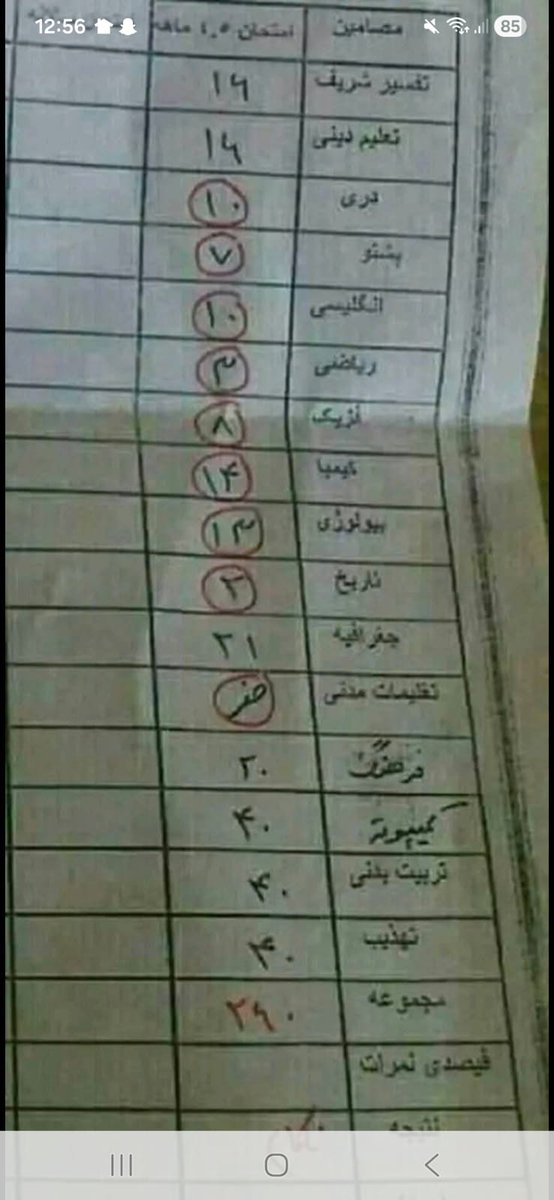 12:56 85
مضامین امتحان ۴.۵ ماهه
تفسیر شریف ۱۶
تعلیم دینی ۱۶
دری ۱۰
پشتو ۷
انگلیسی ۱۰
ریاضی ۳
فزیک ۸
کیمیا ۱۴
بیولوژی ۱۳
تاریخ ۲
جغرافیه ۲۱
تعلیمات مدنی صفر
فرهنگ ۲۰
کمپیوتر ۴۰
تربیت بدنی ۴۰
تهذیب ۴۰
مجموعه ۲۶۰
فیصدی نمرات
نتیجه